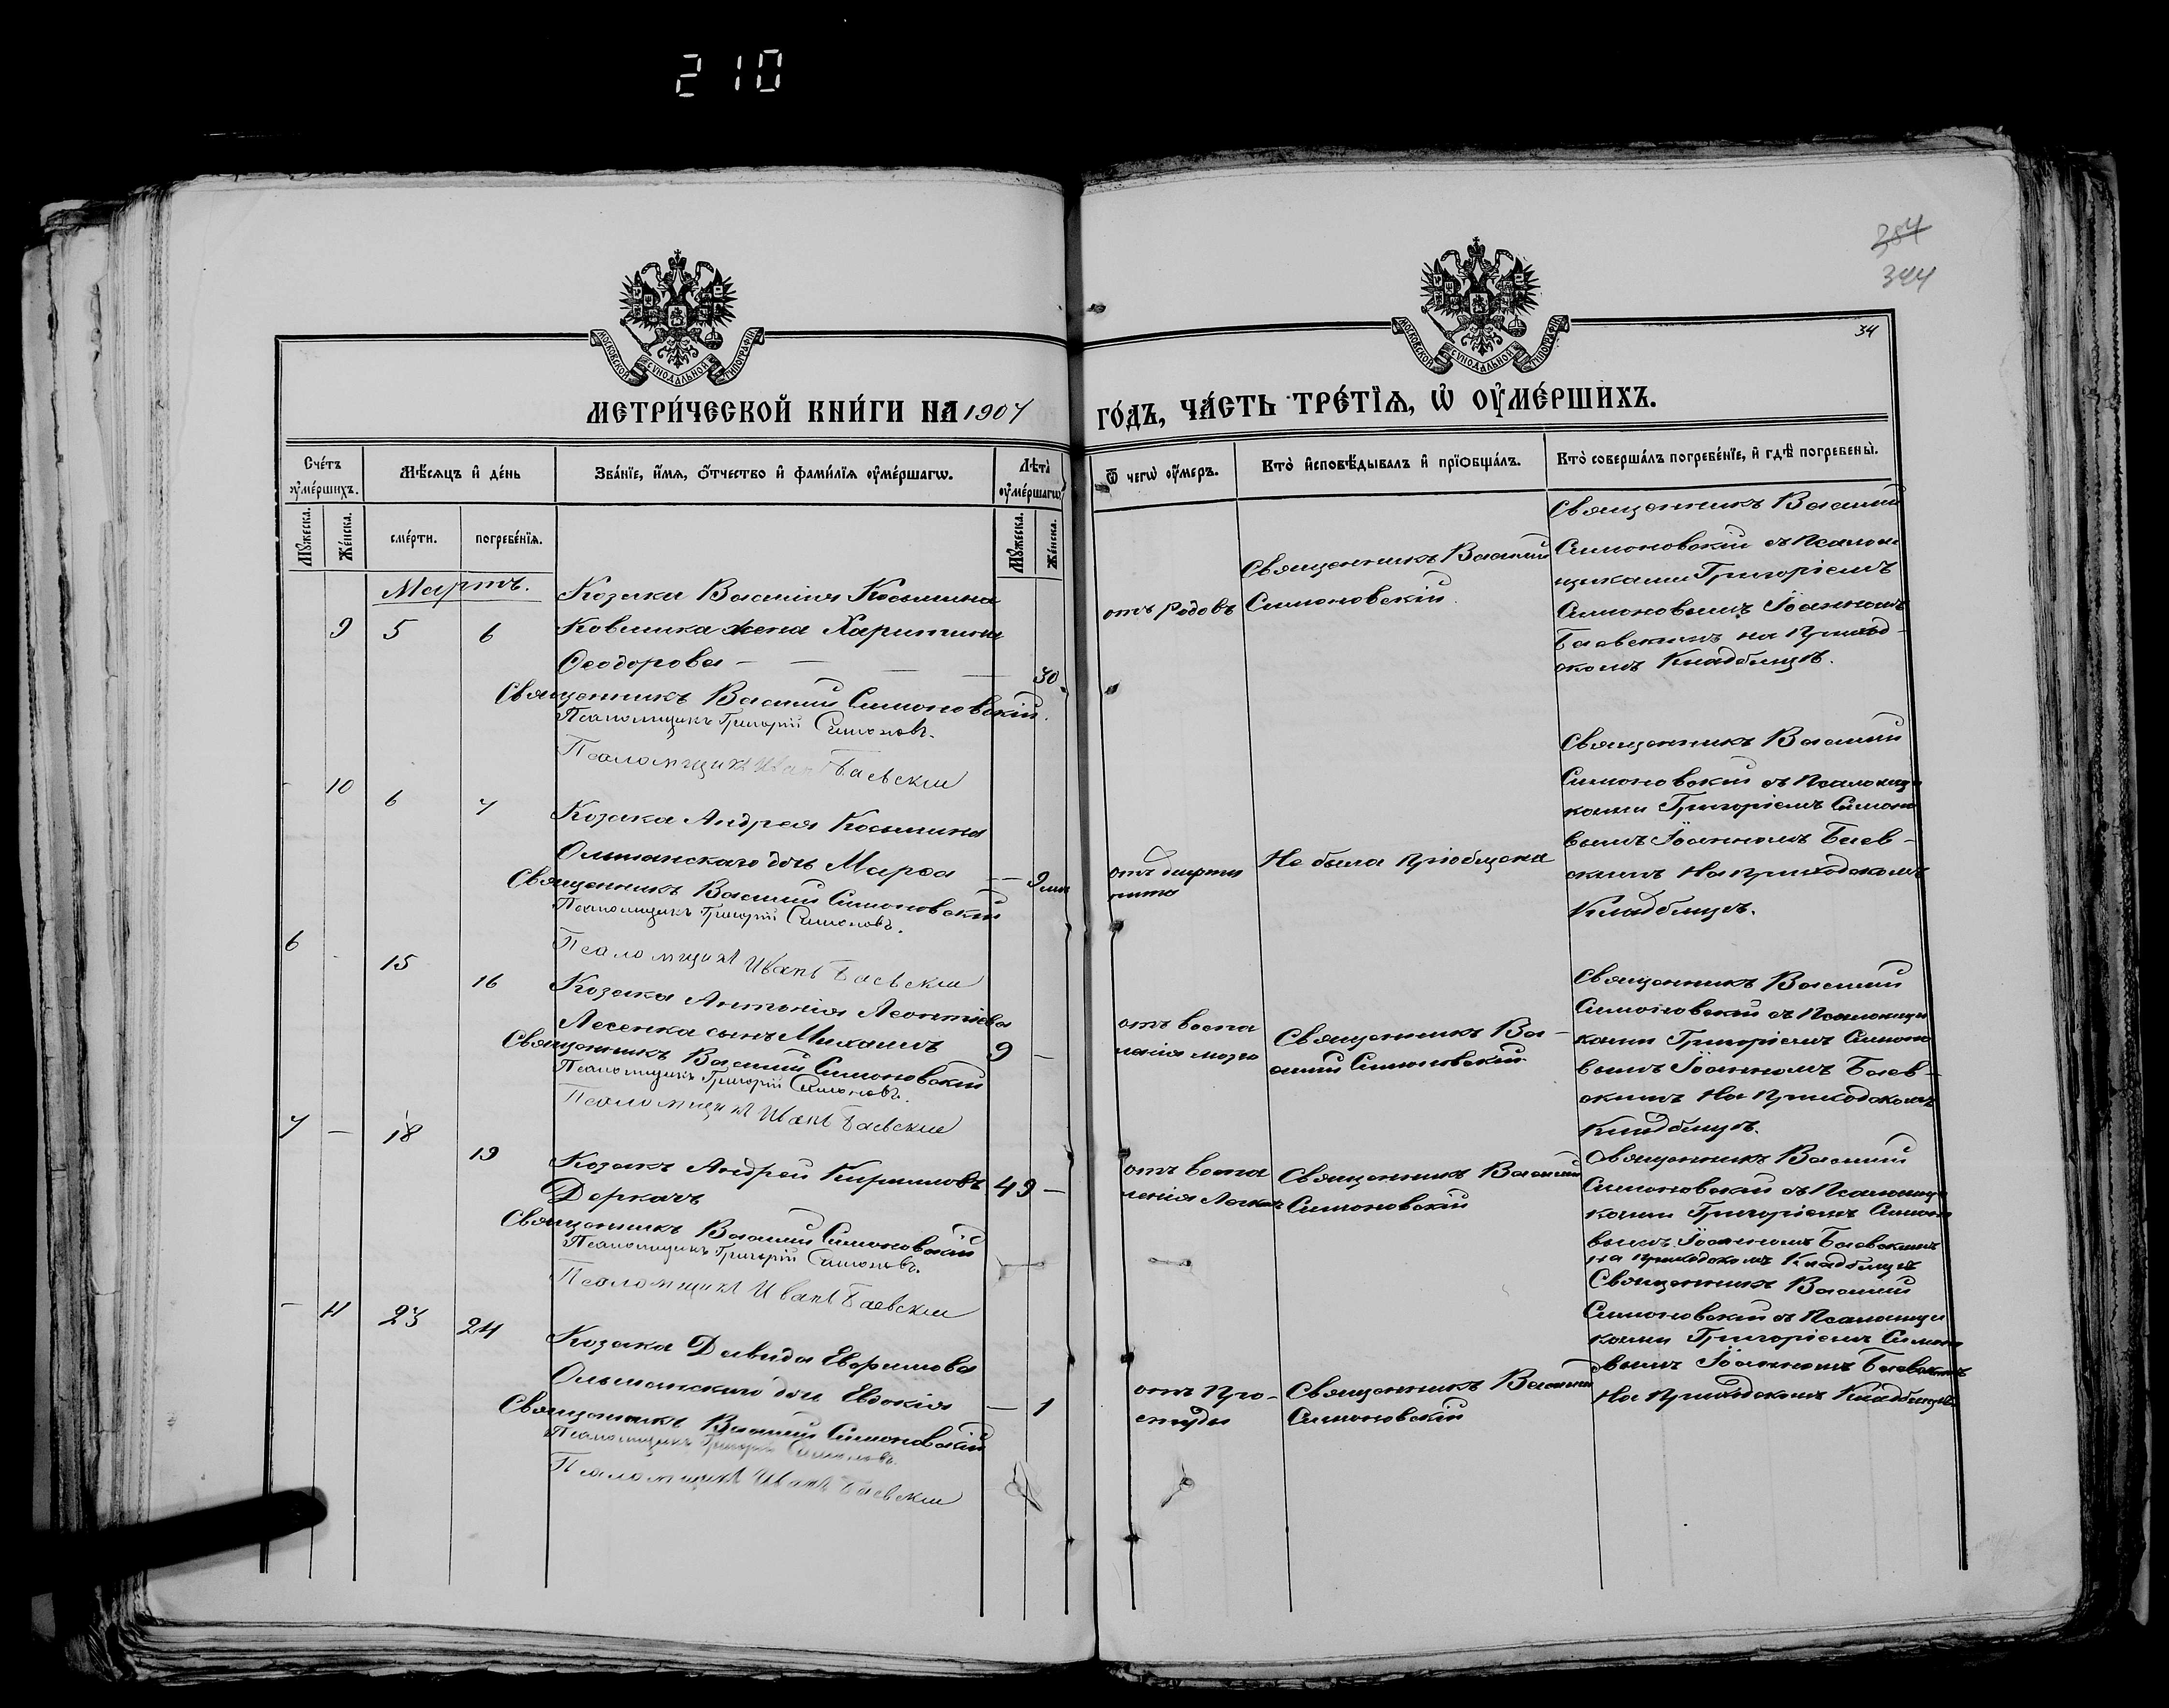 210
384
344
34
МОСКОВСКОЙ СѴНОДАЛЬНОЙ ТИПОГРАФІИ
МОСКОВСКОЙ СѴНОДАЛЬНОЙ ТИПОГРАФІИ
МЕТРИ́ЧЕСКОЙ КНИ́ГИ НА 1907
ГО́ДЪ, ЧА́СТЬ ТРЕ́ТЇѦ, Ѡ҆ ОУ҆МЕ́РШИХЪ.
Сче́тъ оу҆ме́ршихъ.
Мѣ́сяцъ и҆ де́нь
Зва́нїе, и҆́мѧ, ѻ҆́тчество и҆ фами́лїѧ оу҆ме́ршагѡ.
Лѣ́та оу҆ме́ршагѡ
Ѿ чегѡ̀ оу҆́меръ.
Кто̀ и҆сповѣ́дывалъ и҆ прїѻбща́лъ.
Кто̀ соверша́лъ погребе́нїе, и҆ гдѣ̀ погребены̀.
Мꙋ́жеска.
Же́нска.
сме́рти.
погребе́нїѧ.
Мꙋ́жеска.
Же́нска.
Мартъ.
9 5 6
Козака Василія Косьмина
Ковшика жена Харитина
Ѳеодорова — — — — 30
Священникъ Василій Симоновскій.
Псаломщикъ Григорій Симоновъ.
Псаломщикъ Иванъ Баевскій
отъ родовъ
Священникъ Василій
Симоновскій.
Священникъ Василій
Симоновскій съ псалом
щиками Григоріемъ
Симоновымъ Іоанномъ
Баевскимъ на приход-
скомъ кладбищѣ.
- 10 6 7
Козака Андрея Косьмина
Ольшанскаго дочь Марѳа — 9 мѣс
Священникъ Василій Симоновскій
Псаломщикъ Григорій Симоновъ.
Псаломщикъ Иванъ Баевскій
отъ дифте
рита
Не была пріобщена
Священникъ Василій
Симоновскій съ псаломщи
ками Григоріемъ Симоно
вымъ Іоанномъ Баев-
скимъ на приходскомъ
кладбищѣ.
6 - 15 16
Козака Антонія Леонтіева
Лесенка сынъ Михаилъ 9 —
Священникъ Василій Симоновскій
Псаломщикъ Григорій Симоновъ.
Псаломщикъ Иванъ Баевскій
отъ воспа
ленія мозга
Священникъ Ва-
силій Симоновскій
Священникъ Василій
Симоновскій съ псаломщи
ками Григоріемъ Симоно
вымъ Іоанномъ Баев-
скимъ на приходскомъ
кладбищѣ.
7 — 18 19
Козакъ Андрей Кирилловъ 49 —
Деркачъ
Священникъ Василій Симоновскій
Псаломщикъ Григорій Симоновъ.
Псаломщикъ Иванъ Баевскій
отъ воспа
ленія легкихъ
Священникъ Василій
Симоновскій
Священникъ Василій
Симоновскій съ псаломщи
ками Григоріемъ Симоно
вымъ Іоанномъ Баевскимъ
на приходскомъ кладбищѣ
— 11 23 24
Козака Давида Евфимова
Ольшанскаго дочь Евдокія — 1
Священникъ Василій Симоновскій
Псаломщикъ Григорій Симоновъ.
Псаломщикъ Иванъ Баевскій
отъ про-
студы
Священникъ Василій
Симоновскій
Священникъ Василій
Симоновскій съ псаломщи
ками Григоріемъ Симоно
вымъ Іоанномъ Баевскимъ
на приходскомъ кладбищѣ.